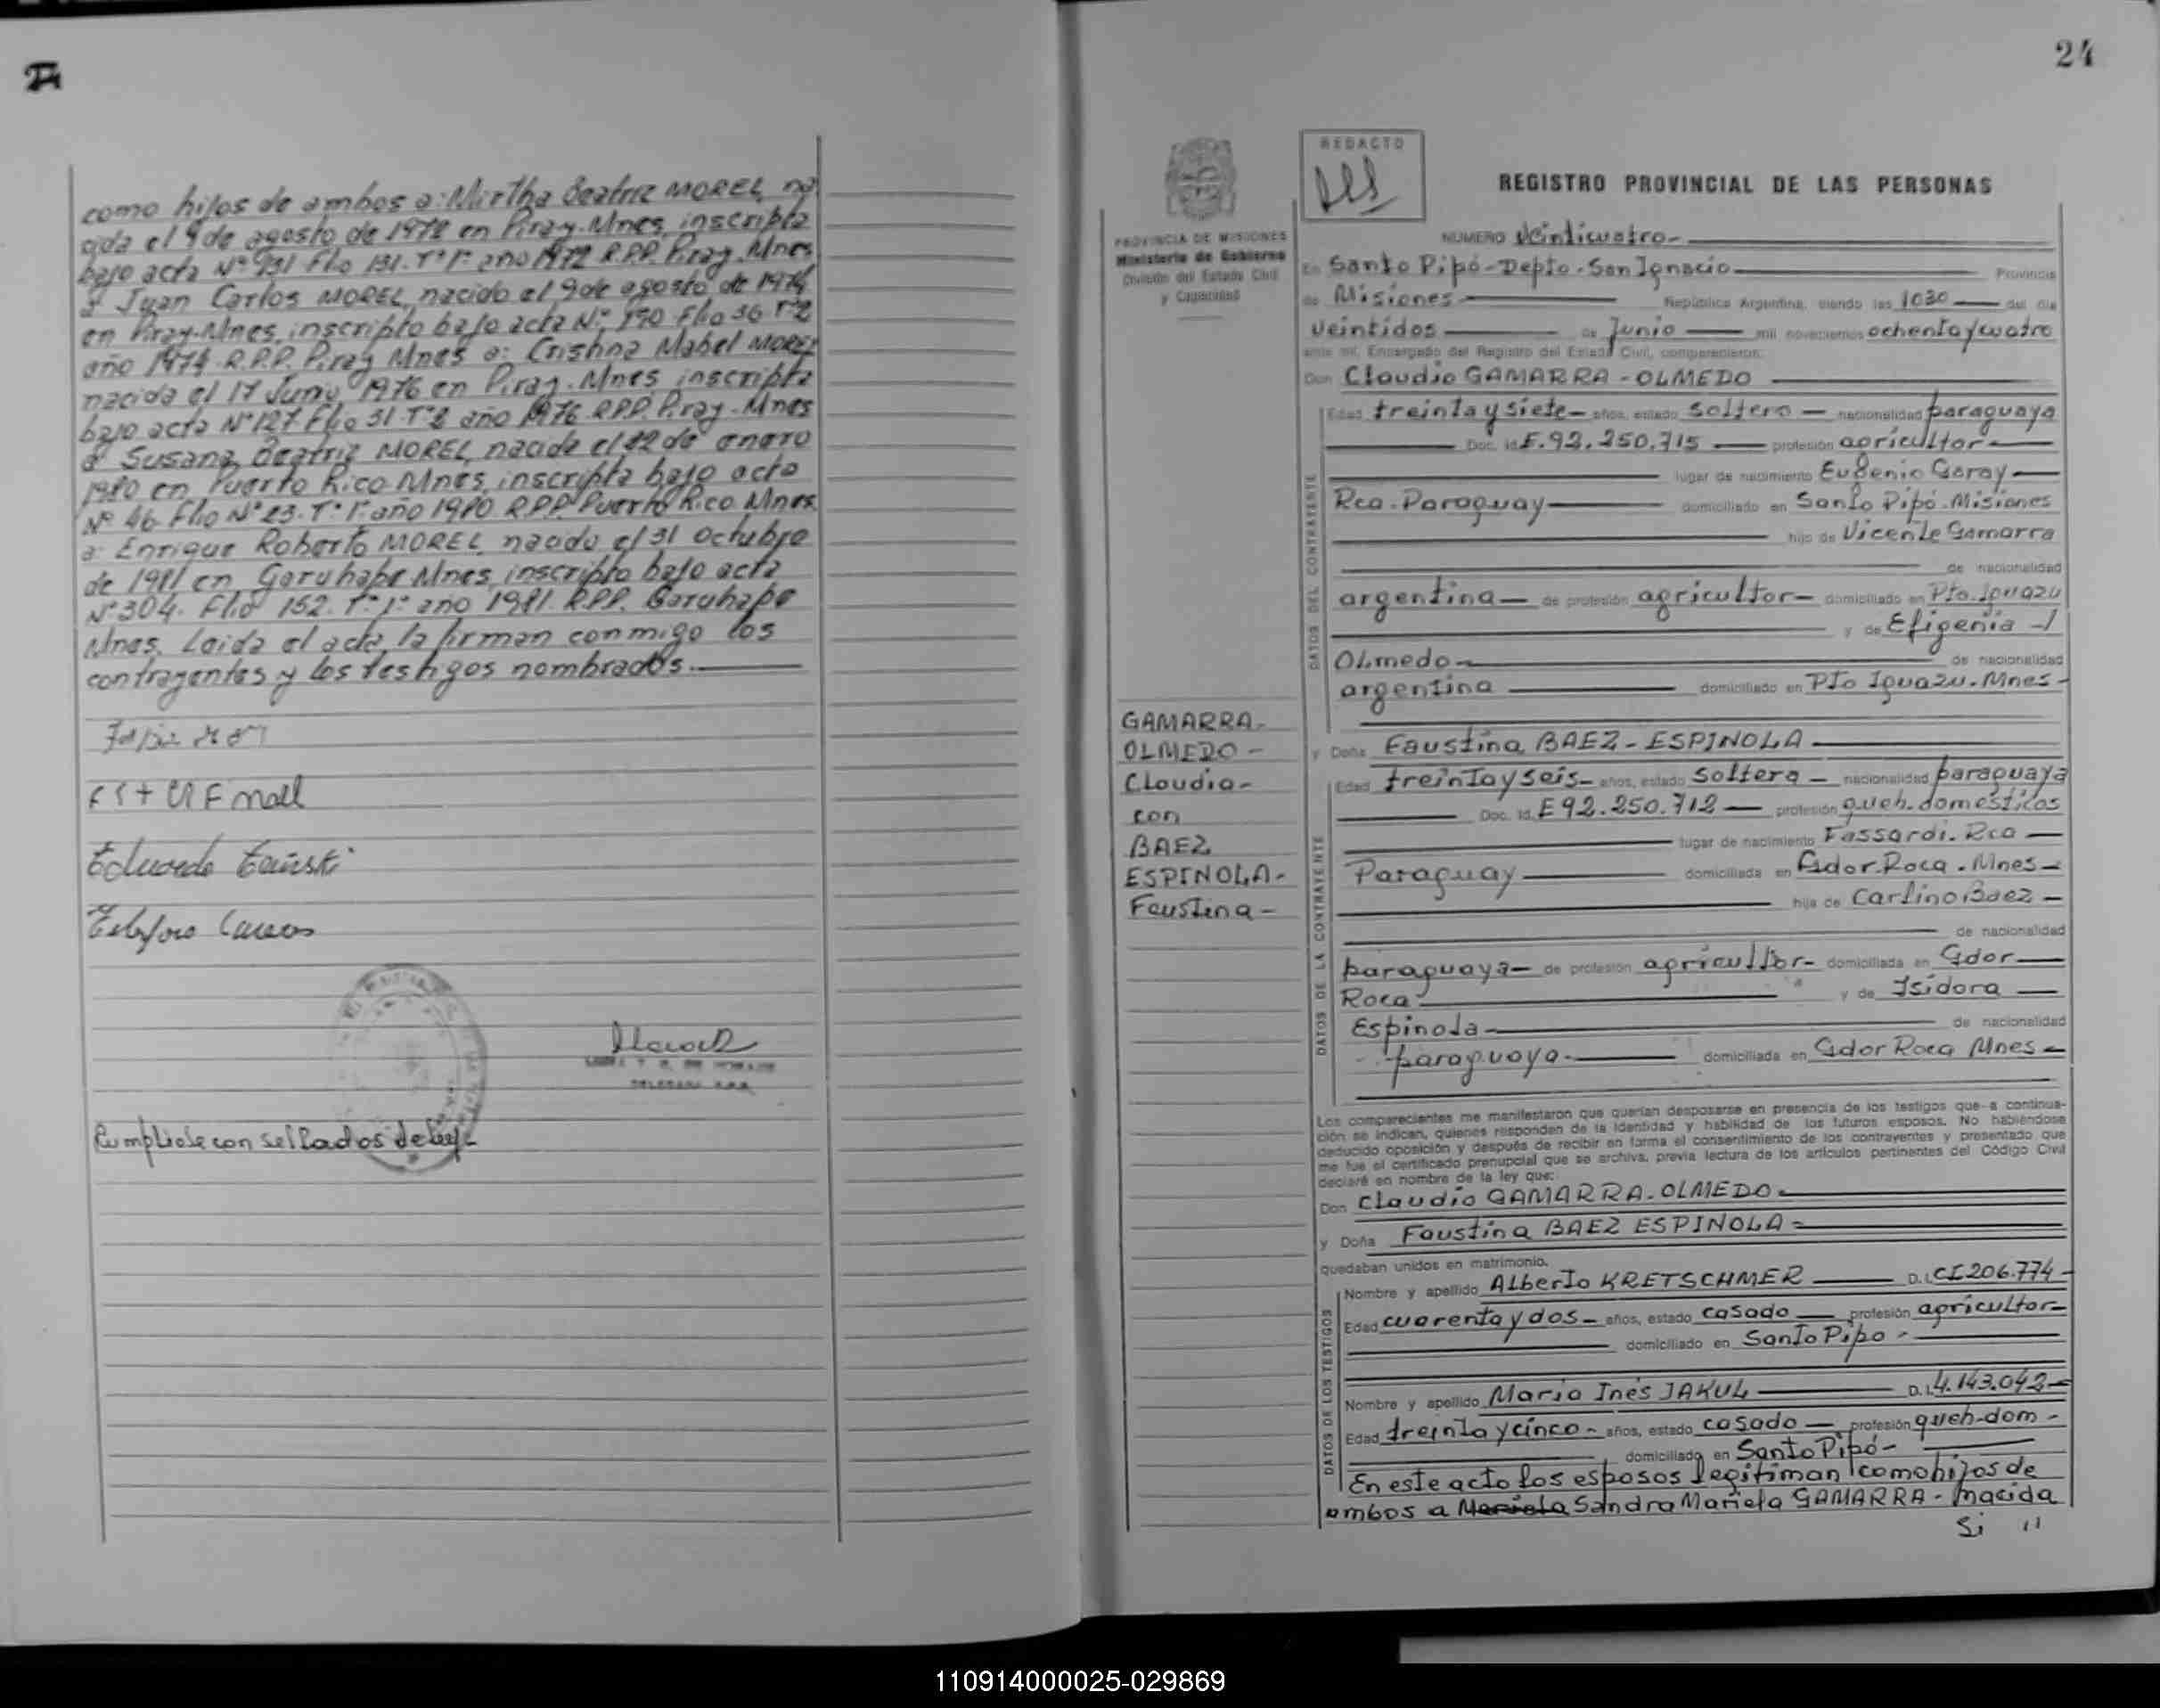 como hijos de ambos a: Mirtha Beatriz MOREL, na
cida el 9 de agosto de 1972 en Piray-Mnes, inscripta
bajo acta Nº 131 Flio 131. Tº 1º año 1972 R.P.P. Piray Mnes
a Juan Carlos MOREL, nacido el 9 de agosto de 1974
en Piray-Mnes, inscripto bajo acta Nº 190 Flio 36 Tº 2
año 1974 R.P.P. Piray Mnes a: Cristina Mabel MOREL
nacida el 17 Junio 1976 en Piray-Mnes inscripta
bajo acta Nº 127 Flio 31 Tº 2 año 1976 R.P.P. Piray-Mnes
a Susana Beatriz MOREL, nacida el 22 de enero
1980 en Puerto Rico Mnes, inscripta bajo acta
Nº 46 Flio Nº 23. Tº 1º año 1980 R.P.P. Puerto Rico Mnes.
a: Enrique Roberto MOREL, nacido el 31 octubre
de 1981 en Garuhape Mnes, inscripto bajo acta
Nº 304. Flio 152. Tº 1º año 1981. R.P.P. Garuhape
Mnes. Leida el acta, la firman conmigo los
contrayentes y los testigos nombrados.
Cumpliose con sellados de ley-
24
PROVINCIA DE MISIONES
Ministerio de Gobierno
División del Estado Civil
y Capacidad
REDACTO
REGISTRO PROVINCIAL DE LAS PERSONAS
NUMERO Veinticuatro-
En Santo Pipó-Depto-San Ignacio Provincia
de Misiones República Argentina, siendo las 1030 del día
veintidos de Junio mil novecientos ochenta y cuatro
ante mí, Encargado del Registro del Estado Civil, comparecieron:
Don Claudio GAMARRA-OLMEDO
DATOS DEL CONTRAYENTE
Edad treinta y siete- años, estado soltero- nacionalidad paraguaya
Doc. Id. E.92.250.715 profesión agricultor-
lugar de nacimiento Eugenio Garay-
Rca-Paraguay domiciliado en Santo Pipó-Misiones
hijo de Vicente Gamarra
de nacionalidad
argentina- de profesión agricultor- domiciliado en Pto. Iguazu
y de Efigenia -/
Olmedo- de nacionalidad
argentina domiciliado en Pto Iguazu-Mnes-
GAMARRA-
OLMEDO-
Claudio-
con
BAEZ
ESPINOLA-
Faustina-
y Doña Faustina BAEZ-ESPINOLA
DATOS DE LA CONTRAYENTE
Edad treinta y seis- años, estado soltera- nacionalidad paraguaya
Doc. Id. E 92.250.712- profesión queh-domésticos
lugar de nacimiento Fassardi. Rca
Paraguay domiciliada en Gdor Roca-Mnes-
hija de Carlino Baez-
de nacionalidad
paraguaya- de profesión agricultor- domiciliada en Gdor
Roca y de Isidora
Espinola- de nacionalidad
paraguaya- domiciliada en Gdor Roca Mnes-
Los comparecientes me manifestaron que querían desposarse en presencia de los testigos que a continua-
ción se indican, quienes responden de la identidad y habilidad de los futuros esposos. No habiéndose
deducido oposición y después de recibir en forma el consentimiento de los contrayentes y presentado que
me fue el certificado prenupcial que se archiva, previa lectura de los artículos pertinentes del Código Civil
declaré en nombre de la ley que:
Don Claudio GAMARRA-OLMEDO-
y Doña Faustina BAEZ ESPINOLA-
quedaban unidos en matrimonio.
DATOS DE LOS TESTIGOS
Nombre y apellido Alberto KRETSCHMER D.I. CI 206.774-
Edad cuarenta y dos- años, estado casado profesión agricultor-
domiciliado en Santo Pipo-
Nombre y apellido Maria Inés JAKUL D.I. 4.143.042-
Edad treinta y cinco- años, estado casado profesión queh-dom-
domiciliado en Santo Pipó-
En este acto los esposos legitiman como hijos de
ambos a Mariela Sandra Mariela GAMARRA- nacida
Si "
110914000025-029869